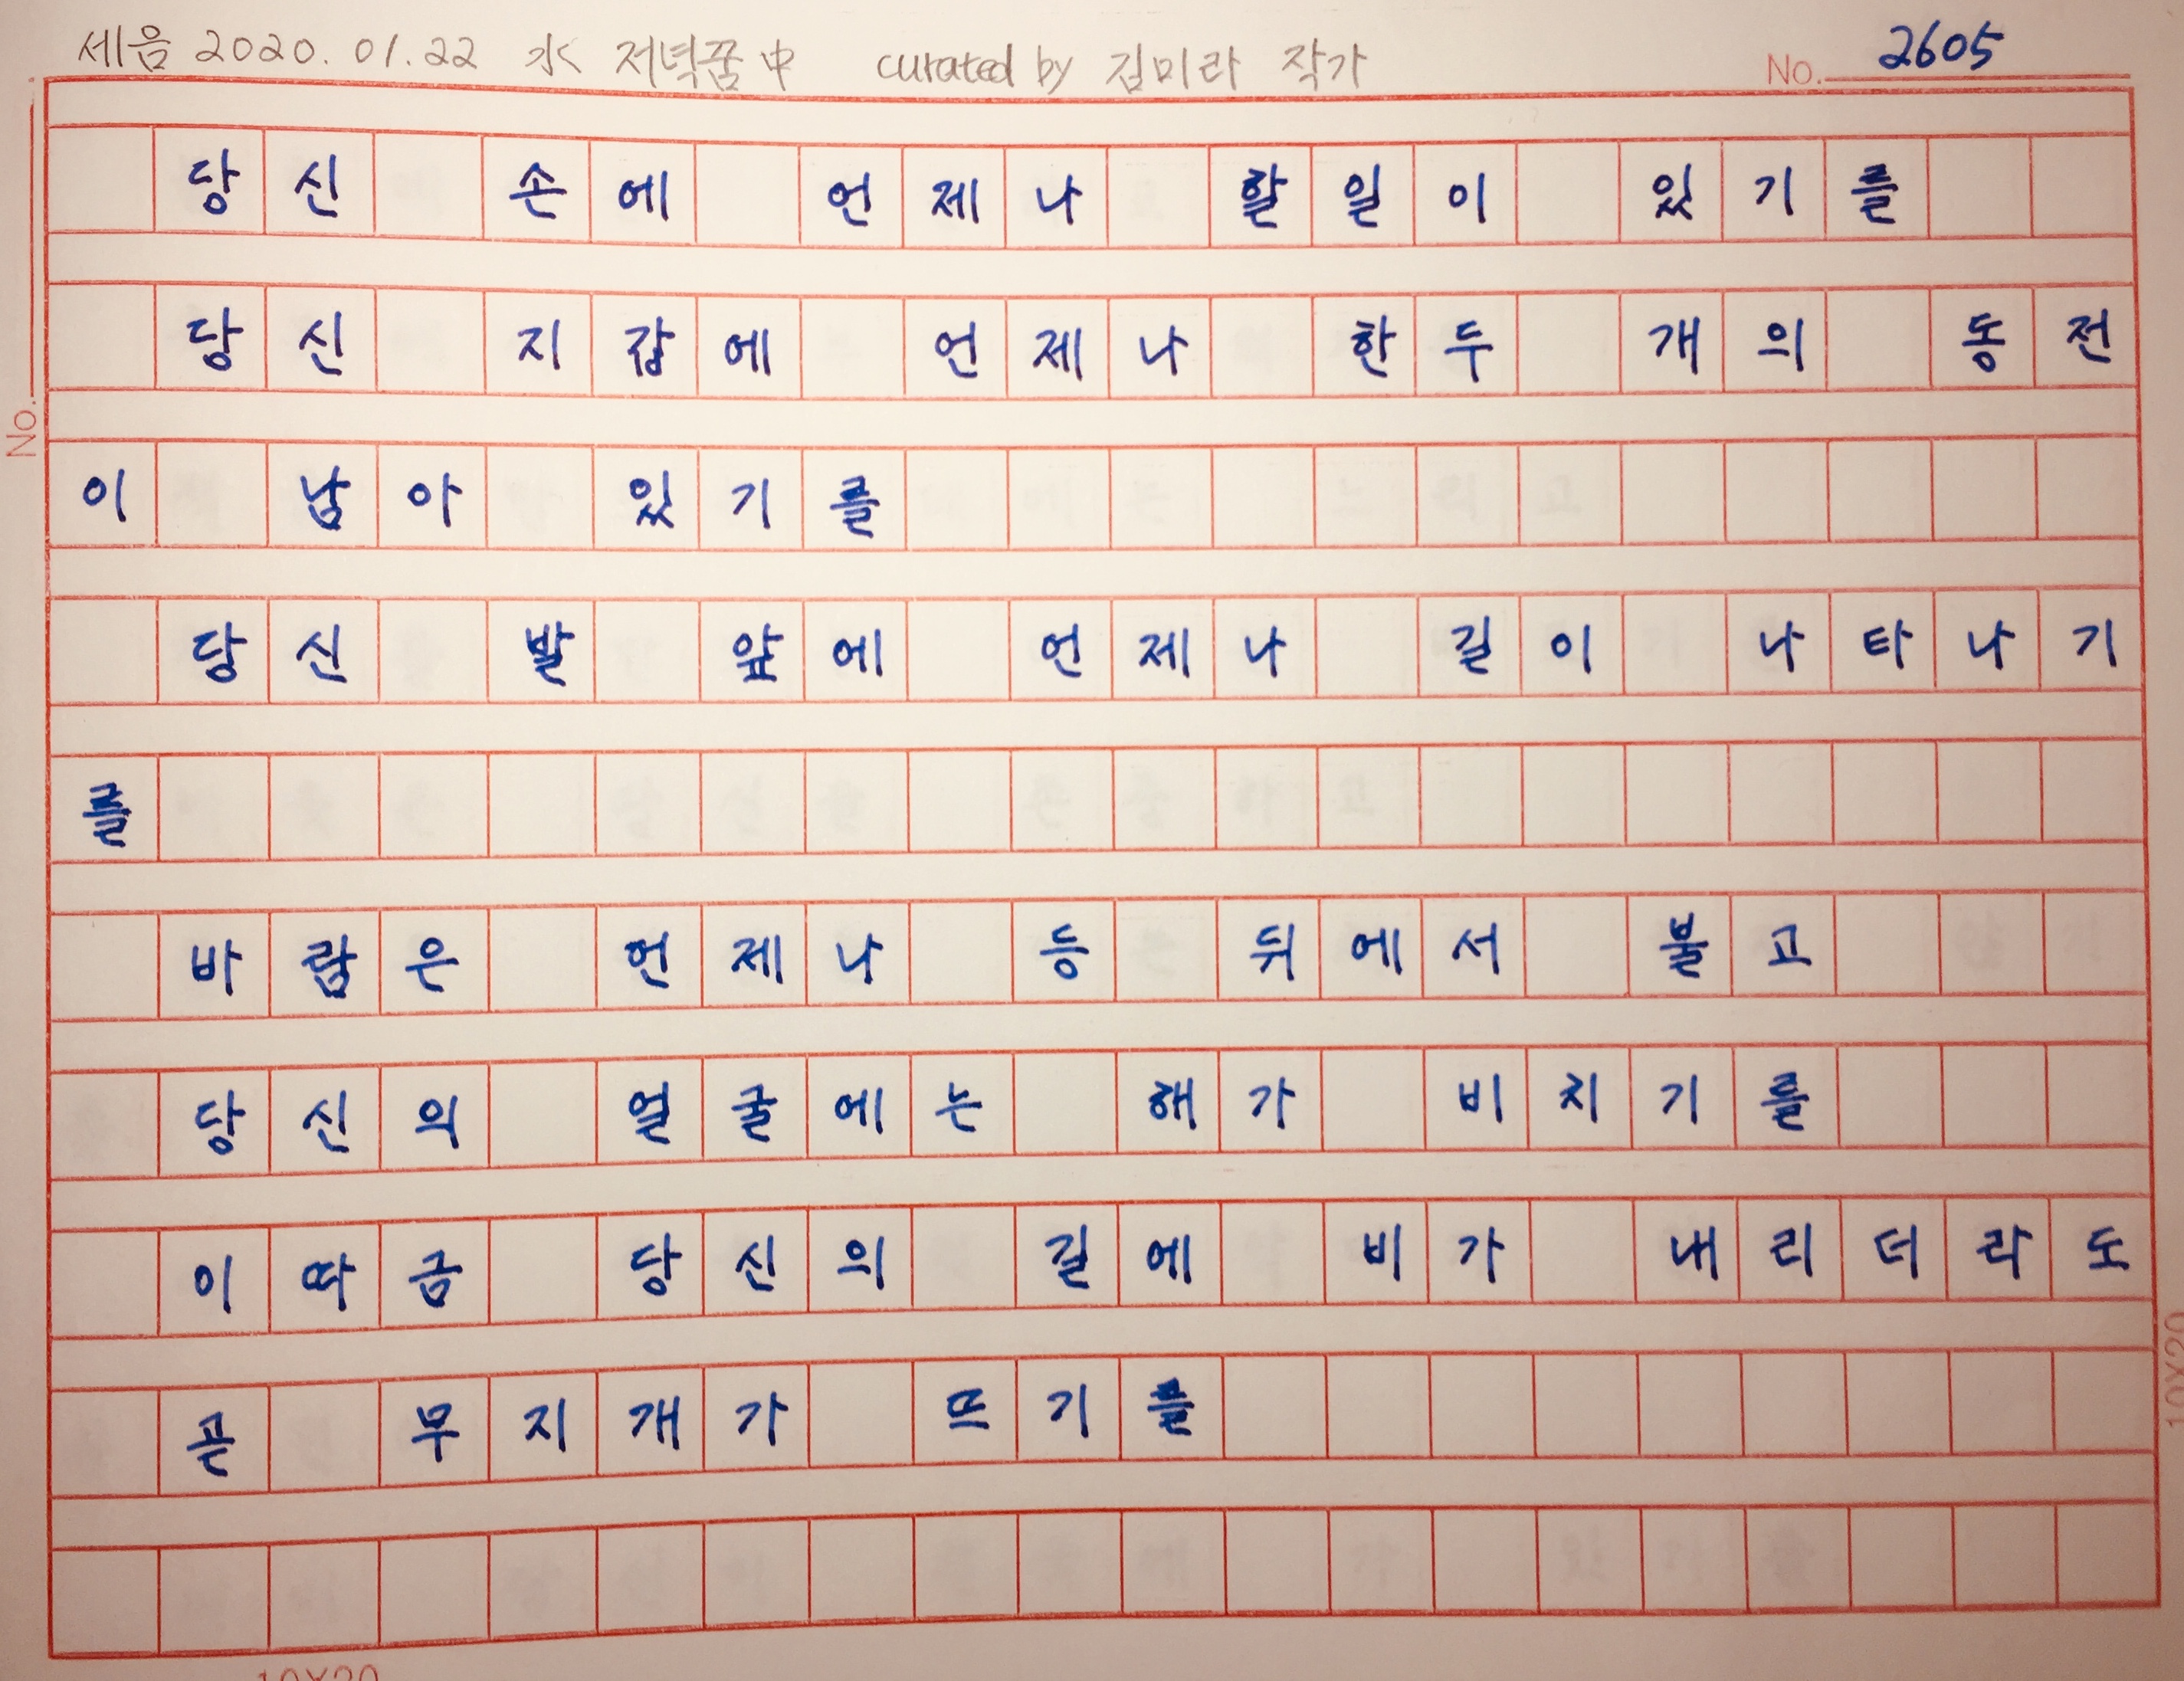 세음 2020. 01. 22 水 저녁꿈 中 curated by 김미라 작가 No. 2605
당신 손에 언제나 할일이 있기를
당신 지갑에 언제나 한두 개의 동전
이 남아 있기를
당신 발 앞에 언제나 길이 나타나기
를
바람은 언제나 등 뒤에서 불고
당신의 얼굴에는 해가 비치기를
이따금 당신의 길에 비가 내리더라도
곧 무지개가 뜨기를
No.
10X20
10X20